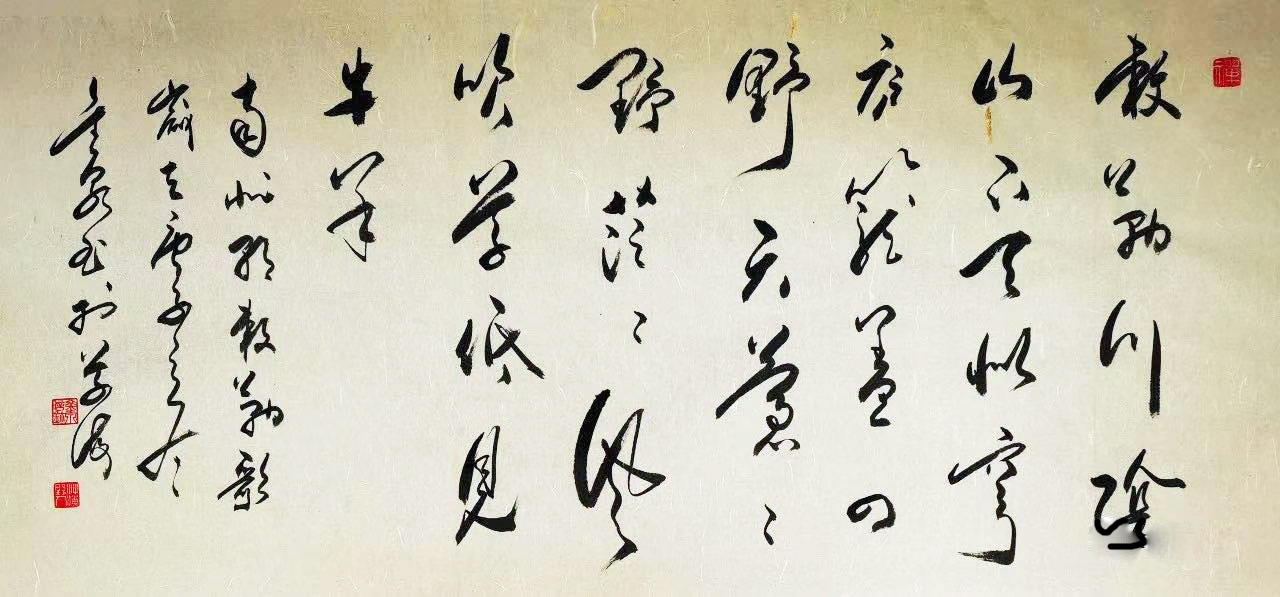 敕勒川陰
山下天似穹
廬籠蓋四
野天蒼〻
野茫〻風
吹草低見
牛羊
南北朝敕勒歌
歲在庚子之冬
泉書於草海
禪